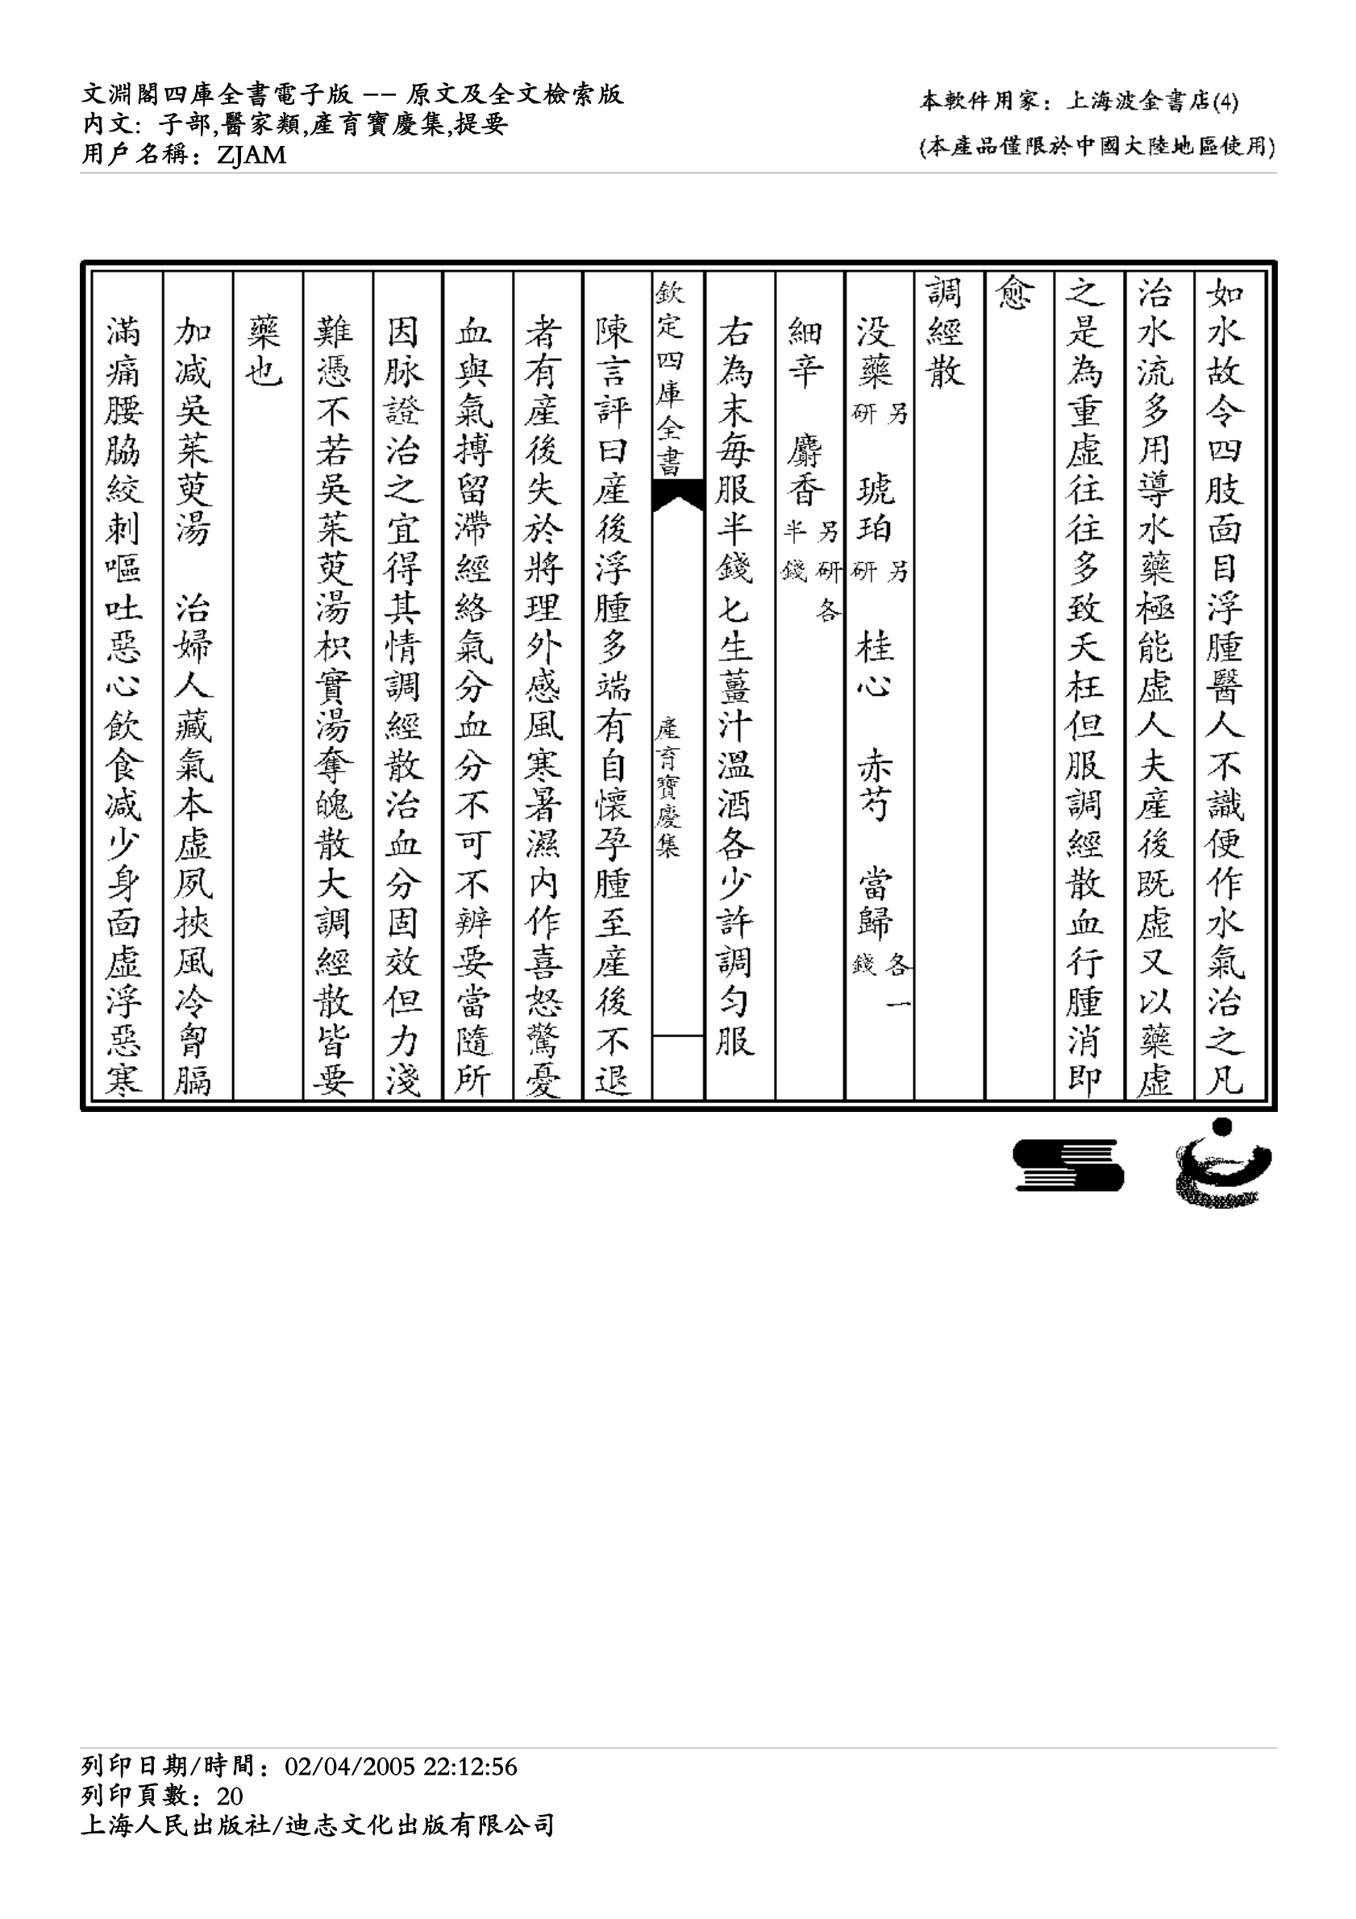 文淵閣四庫全書電子版 -- 原文及全文檢索版
内文：子部,醫家類,產育寶慶集,提要
用戶名稱：ZJAM
本軟件用家：上海波金書店(4)
(本產品僅限於中國大陸地區使用)
如水故令四肢面目浮腫醫人不識便作水氣治之凡
治水流多用導水藥極能虚人夫產後既虚又以藥虚
之是為重虚往往多致夭枉但服調經散血行腫消即
愈
調經散
没藥另研 琥珀另研 桂心 赤芍 當歸各一錢
細辛 麝香另研各半錢
右為末每服半錢匕生薑汁溫酒各少許調匀服
欽定四庫全書 產育寶慶集
陳言評曰產後浮腫多端有自懷孕腫至產後不退
者有產後失於將理外感風寒暑濕内作喜怒驚憂
血與氣搏留滯經絡氣分血分不可不辨要當隨所
因脉證治之宜得其情調經散治血分固效但力淺
難憑不若吳茱萸湯枳實湯奪魄散大調經散皆要
藥也
加减吳茱萸湯 治婦人藏氣本虚夙挾風冷胷膈
滿痛腰脇絞刺嘔吐惡心飲食减少身面虚浮惡寒
列印日期/時間：02/04/2005 22:12:56
列印頁數：20
上海人民出版社/迪志文化出版有限公司